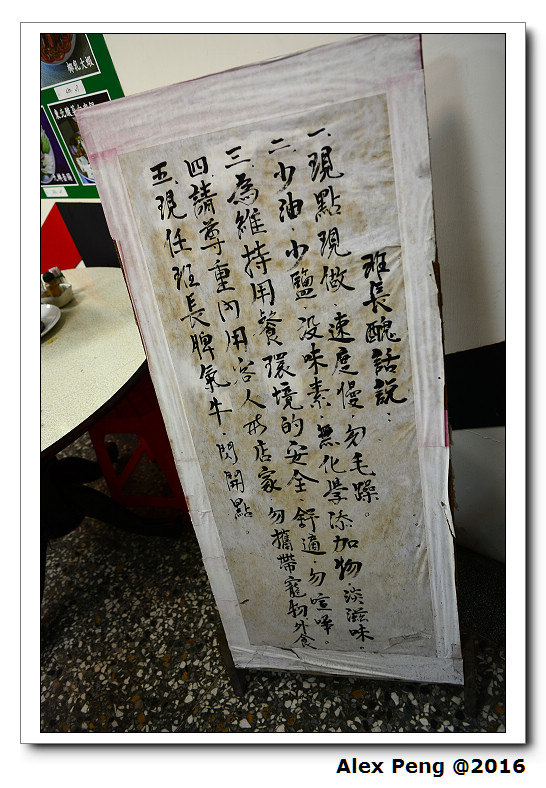 椰乳大蝦
班長醜話說：
一.現點現做.速度慢.勿毛躁。
二.少油.少鹽.沒味素.無化學添加物.淡滋味。
三.為維持用餐環境的安全.舒適.勿喧嘩。
四.請尊重內用客人店家 勿攜帶寵物外食
五.現任班長脾氣牛.閃開點。
Alex Peng @2016